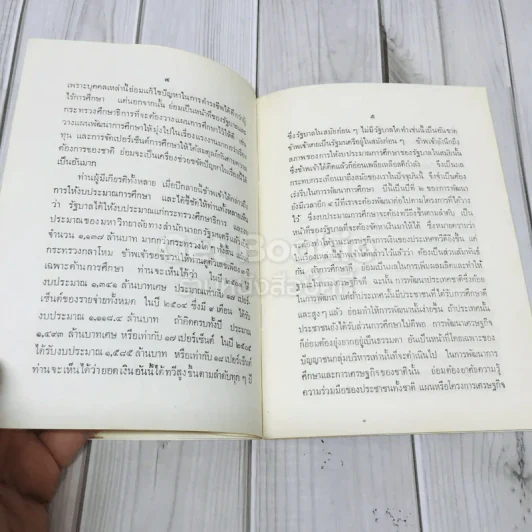 ๘
เพราะบุคคลเหล่านี้ย่อมแก้ไขปัญหาในการดำรงชีพได้ดีกว่าผู้
ไร้การศึกษา แต่นอกจากนั้น ย่อมเป็นหน้าที่ของรัฐบาลและ
กระทรวงศึกษาธิการที่จะต้องวางแผนการศึกษาไว้ให้ดี เช่น
วางแผนพัฒนาการศึกษาให้มุ่งไปในเรื่องแรงงานมากกว่า
ทุน และการจัดเปอร์เซ็นต์การศึกษาให้สมดุลย์กันตามความ
ต้องการของชาติ ย่อมจะเป็นเครื่องช่วยขจัดปัญหาในเรื่องนี้ได้
เป็นอันมาก
ท่านผู้มีเกียรติทั้งหลาย เมื่อปีกลายนี้ข้าพเจ้าได้กล่าวถึง
การให้งบประมาณการศึกษา และได้ชี้ชัดให้ท่านทั้งหลายเห็น
ว่า รัฐบาลได้ให้งบประมาณแก่กระทรวงศึกษาธิการ และ
ประมาณของมหาวิทยาลัยทางสำนักนายกรัฐมนตรีแล้ว
จำนวน ๑,๑๓๗ ล้านบาท มากกว่ากระทรวงใดๆ ทั้งสิ้น
กระทรวงกลาโหม ข้าพเจ้าขอชี้แจงให้ท่านดูตัวเลขเพียง
เฉพาะด้านการศึกษา ท่านจะเห็นได้ว่า ใน
งบประมาณ ๑,๓๔๑ ล้านบาทเศษ หรือเท่ากับ ๑๗ เปอร์
เซ็นต์ของรายจ่ายทั้งหมด ในปี ๒๕๐๔ ซึ่งมี ๙ เดือน ได้รับ
งบประมาณ ๑,๑๑๙.๔ ล้านบาท ถ้าคิดครบทั้งปี ประมาณ
๑,๔๙๓ ล้านบาทเศษ หรือเท่ากับ ๑๗ เปอร์เซ็นต์ ในปี ๒๕๐๕
ได้รับงบประมาณ ๑,๕๘๕ ล้านบาท หรือเท่ากับ ๑๘ เปอร์เซ็นต์
ท่านจะเห็นได้ว่ายอดเงินอันนี้ได้ทวีสูงขึ้นตามลำดับทุก ๆ ปี
๙
ซึ่งรัฐบาลในสมัยก่อน ๆ ไม่มีรัฐบาลใดทำเช่นนี้เป็นอันขาด
ข้าพเจ้าเคยเป็นรัฐมนตรีอยู่ในสมัยก่อน ๆ ข้าพเจ้ายังนึกถึง
สภาพของการให้งบประมาณการศึกษาของรัฐบาลในสมัยนั้น
ซึ่งข้าพเจ้าได้คิดแล้วก็อ่อนเพลียเหลือสติกำลัง ซึ่งเป็นการ
กระทบกระเทือนมาถึงสมัยของเราในปัจจุบันนี้ ซึ่งจำเป็นต้อง
เร่งรีบในการพัฒนาการศึกษา ปีนี้เป็นปีที่ ๒ ของการพัฒนา
ยังมีเวลาอีก ๔ ปีที่เราจะต้องพัฒนาต่อไปตามโครงการที่ได้วาง
ไว้ ซึ่งงบประมาณการศึกษาจะต้องทวียิ่งขึ้นตามลำดับ เป็น
หน้าที่ของรัฐบาลที่จะต้องจัดหาเงินมาให้ ซึ่งหมายความว่า
รัฐบาลจะต้องหาทางเศรษฐกิจการเงินของประเทศทวียิ่งขึ้น แต่
ได้แล้วว่า จะต้องเป็นส่วนสัมพันธ์
กัน ถ้าการศึกษาดี ย่อมเป็นผลในการเพิ่มผลผลิตและทำให้
เศรษฐกิจดีขึ้น การพัฒนาเศรษฐกิจและการพัฒนาการศึกษา
จะ การพัฒนาประเทศชาติจึงจะสมบูรณ์
ประเทศที่มีประชาชนที่ได้รับการศึกษาดี
และสูงๆ แล้ว ย่อมทำให้ประเทศนั้นก้าวหน้า ถ้าประเทศนั้น
ประชาชนยังได้รับส่วนการศึกษาไม่ถึงพอ การพัฒนาเศรษฐกิจ
ก็ย่อมยุ่งยากอยู่เป็นธรรมดา อันเป็นหน้าที่โดยเฉพาะของ
ปัญญาชนกลุ่มบริหารเท่านั้นที่จะดำเนินไป ในการพัฒนาการ
ศึกษาและการเศรษฐกิจของชาตินั้น ย่อมต้องอาศัยความรู้
ความร่วมมือของประชาชนทั้งชาติ แผนหรือโครงการเศรษฐกิจ